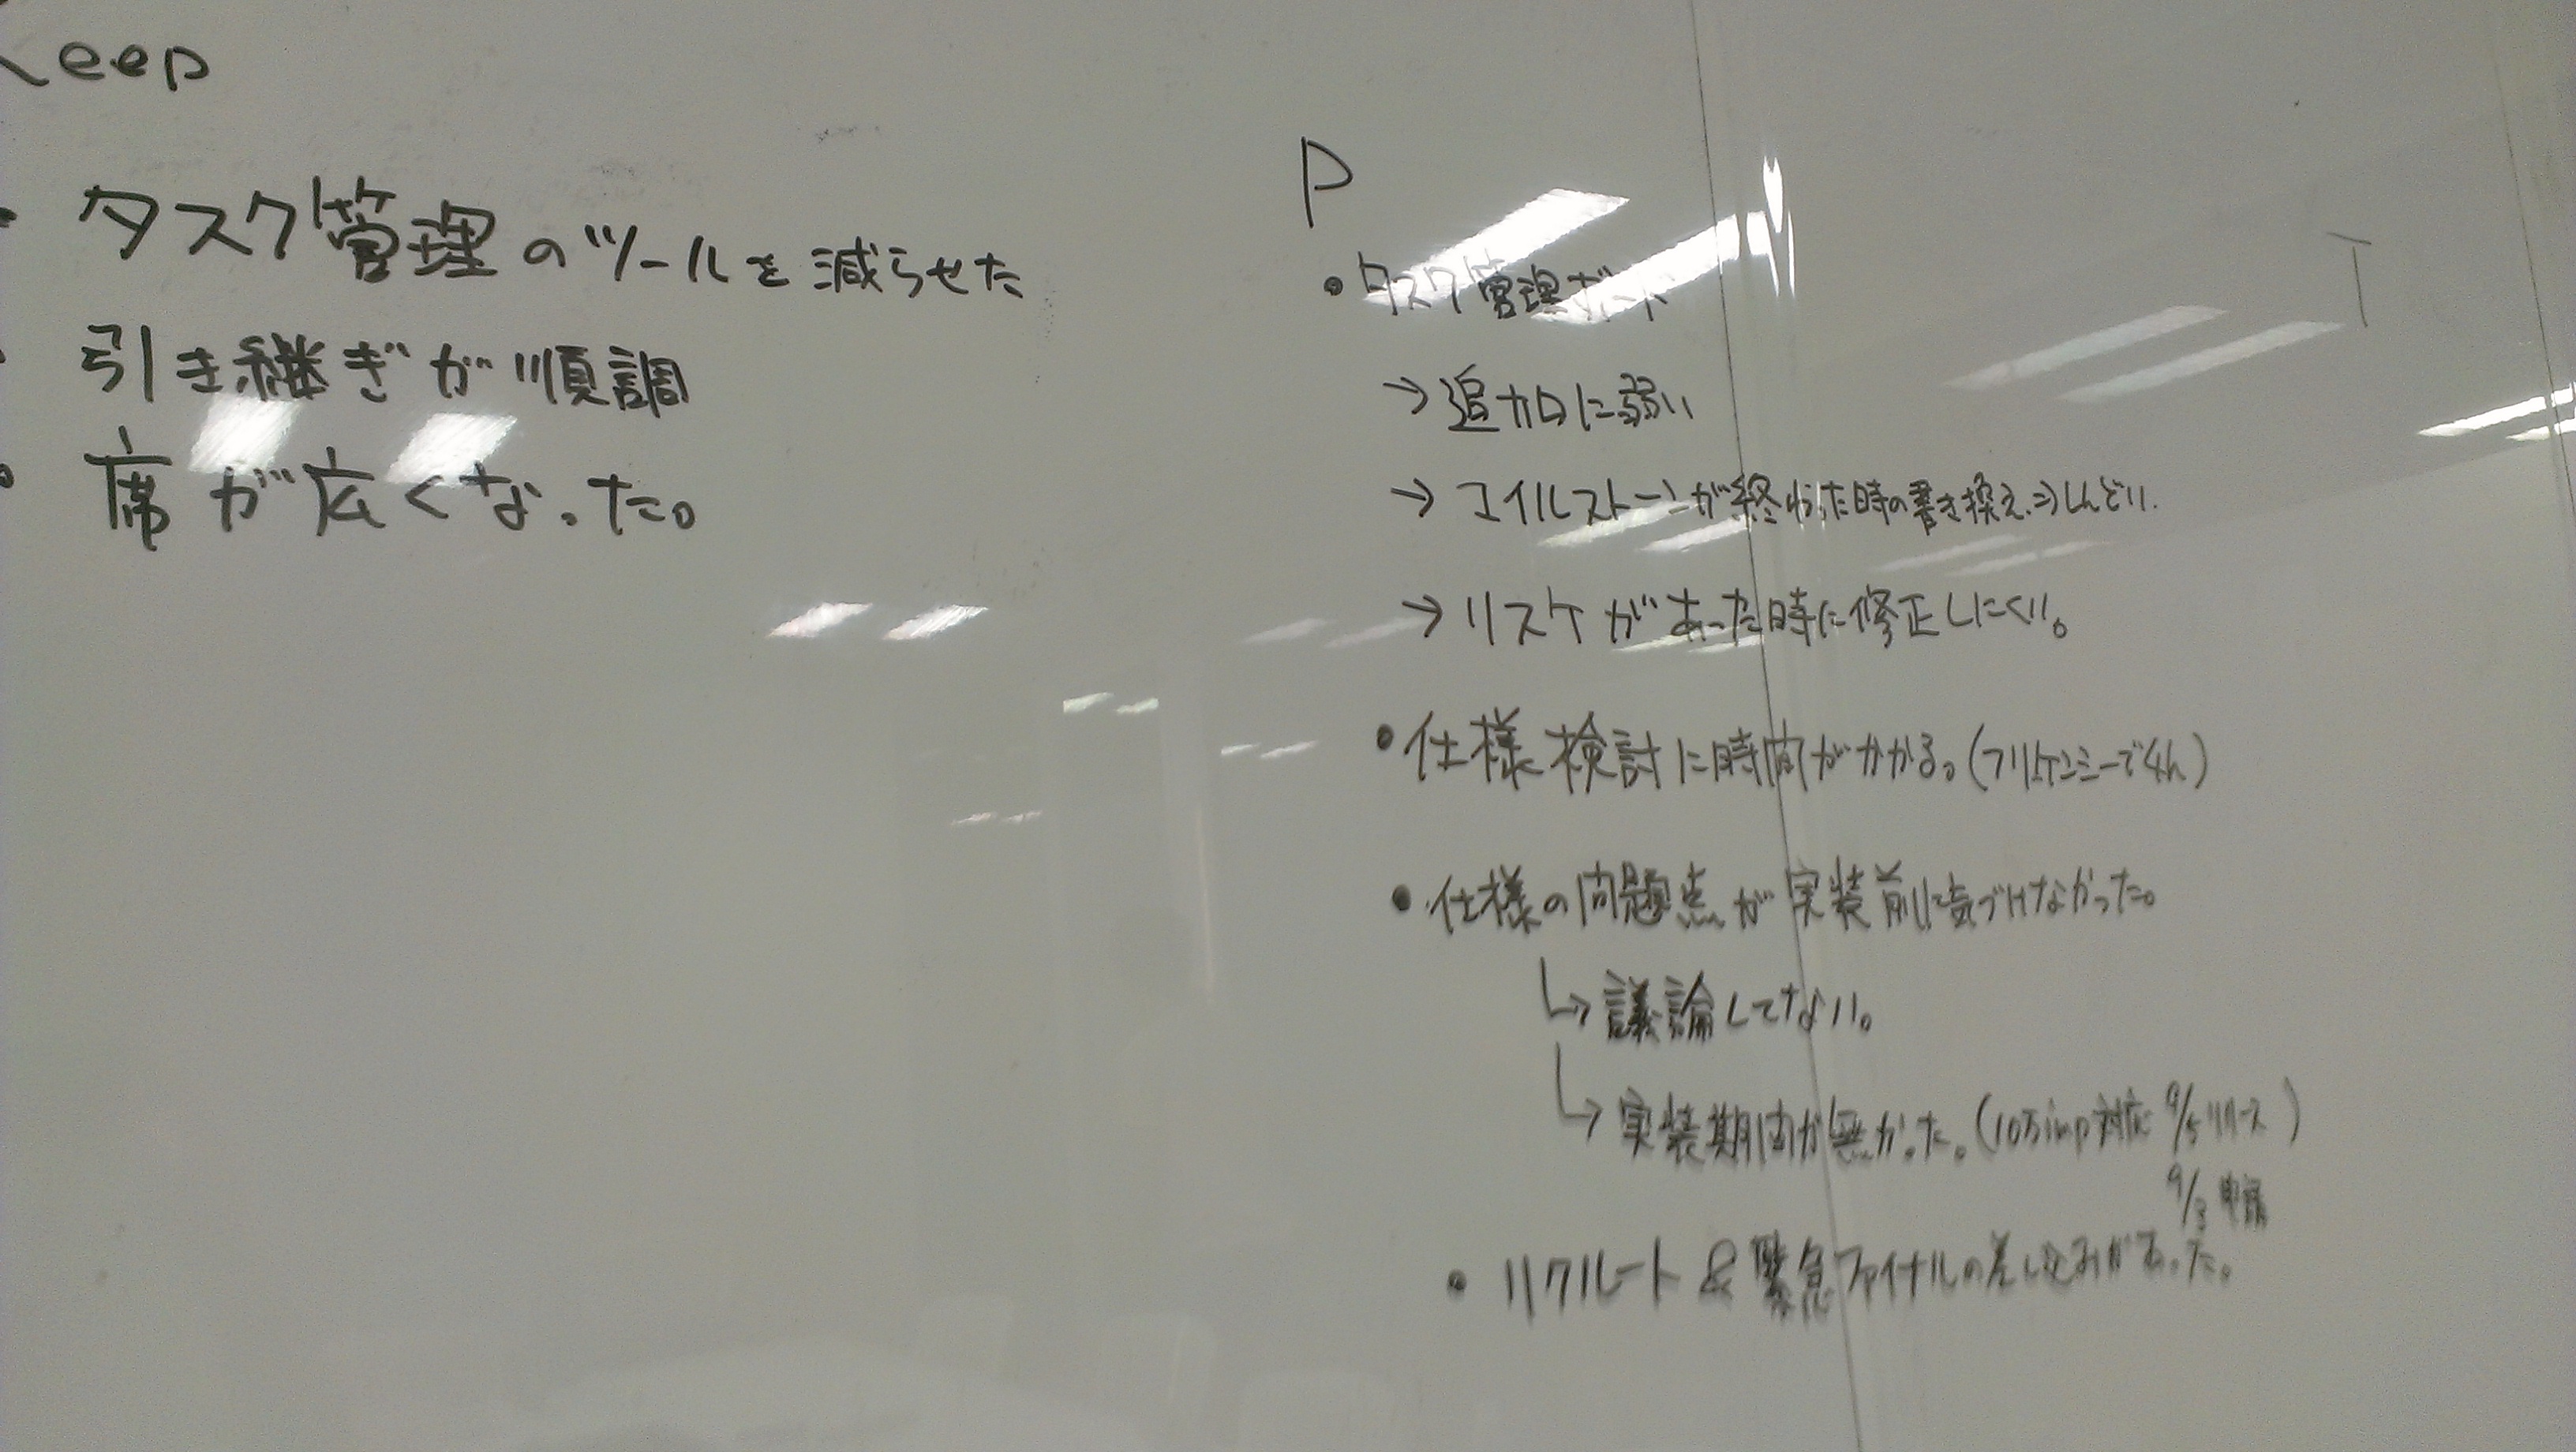 Keep
・タスク管理のツールを減らせた
・引き継ぎが順調
・席が広くなった。
P
・タスク管理ボード
→追加に弱い
→マイルストーンが終わった時の書き換え⇒しんどい.
→リスケがあった時に修正しにくい。
・仕様検討に時間がかかる。(フリケンシーで4h)
・仕様の問題点が実装前に気づけなかった。
↳議論してない。
↳実装期間が無かった。(10万imp対応 9/5リリース)
9/3 申請
・リクルート&緊急ファイナルの差し込みがあった。
T